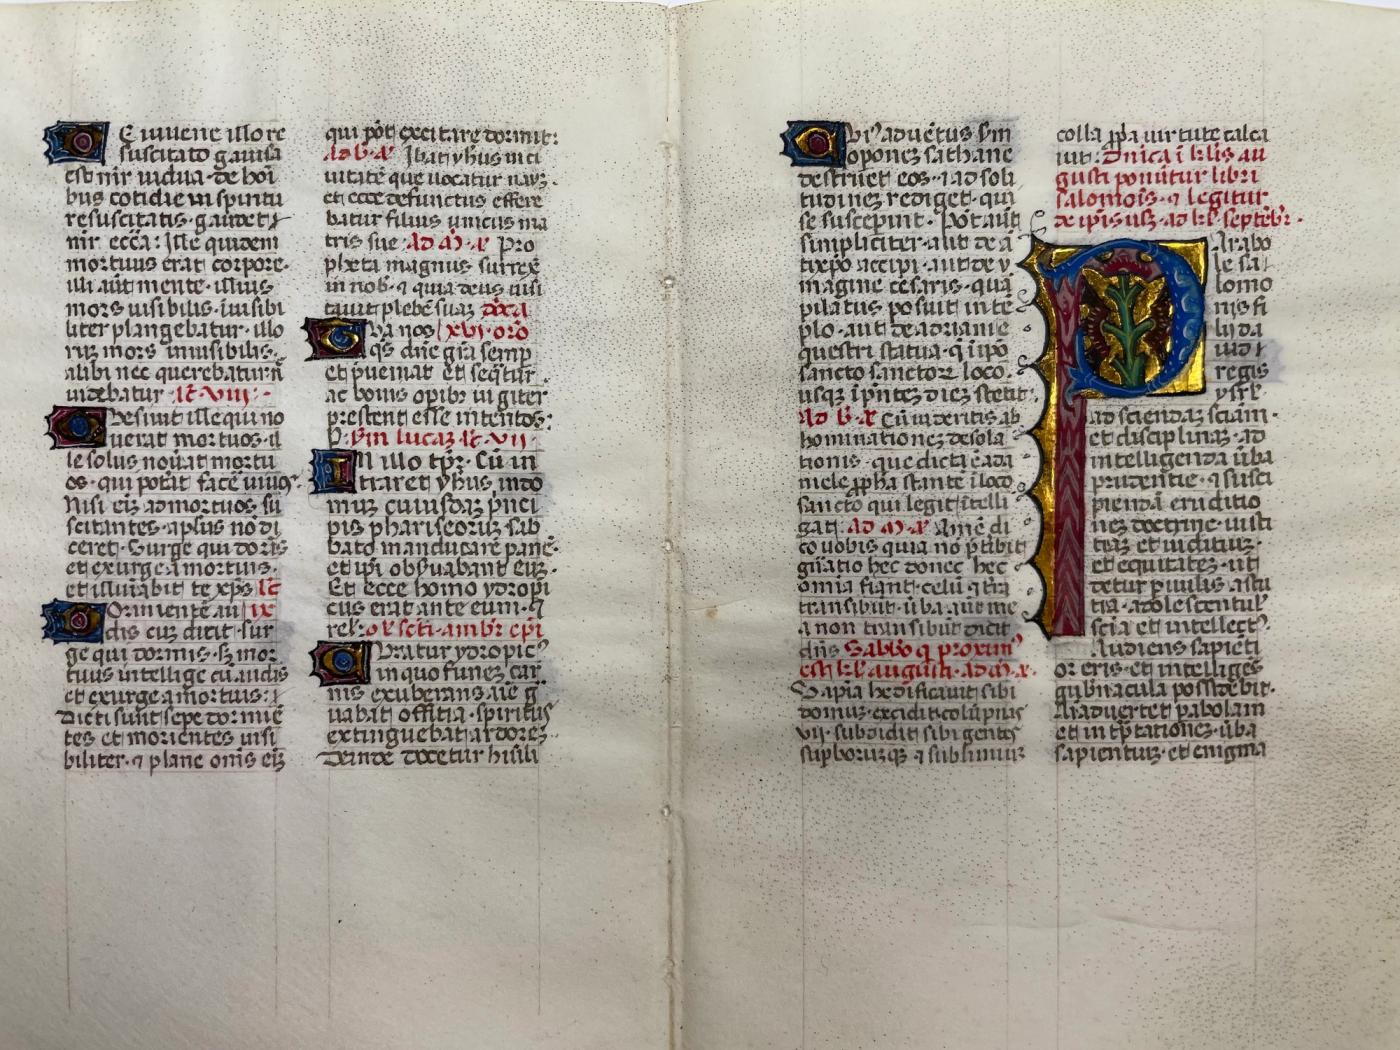 E iuuene illo re
suscitato gauisa
est mr̄ uidua· de hoī
bus cotidie in spiritu
resuscitatis· gaudet
mr̄ ecc̄a: Ille quidem
mortuus erat corpore·
illi aūt mente· illius
mors uisibilis· īuisibi
liter plangebatur· illo
rū mors inuisibilis·
alibi nec querebatur
uidebatur· lc̄· viii·
Desiuit ille qui no
uerat mortuos· il
le solus nouat mortu
os· qui potāt facē uiuos·
Nisi eī ad mortuos su
scitandos· aplus nō di
ceret· Surge qui dormis
et exurge a mortuis·
et illuīabit te xp̄s lc̄
Ormientē aū ix
dis cū dicit· sur
ge qui dormis· sz mor
tuus intellige cū audis
et exurge a mortuis:
Dicti sunt sepe dormiē
tes et morientes uisi
biliter· ⁊ plane om̄s eī
qui pōt excitare dormit:
Ad b· ā Ibat yhus in ci
uitatē que uocatur naỹ·
et ecce defunctus effere
batur filius unicus ma
tris sue· Ad m̄· ā Pro
pheta magnus surrex̄
in nob· ⁊ quia deus uisi
tauit plebē suaz d̄xca
xvi· oro
qs dn̄e gr̄a semp
et pueniat et seq̄tur·
ac bonis opibꝰ iugiter
prestent esse intentos:
S̄m lucaz lc̄· vii·
N illo tp̄r· Cū in
traret yhus in do
muz cuiusdaz p̄nci
pis phariseoruz sab
bato manducare panē·
et ip̄i obs̄uabant euz·
Et ecce homo ydropi
cus erat ante eum· ⁊
rel̄· oḿ sc̄ti· ambr̄· ep̄i
Vratur ydropicꝰ
in quo fluxus car
nis exuberans aīe g
uabat offitia· spiritus
extinguebat ardorez·
Deinde docetur hūili
Vi aduētus s̄m
oponez sathane
destruet eos· ⁊ ad soli
tudinez rediget· qui
se susceperint· Pōt aūt
simpliciter· aut de ā
tixp̄o accipi· aut de y
magine cesaris· quā
pilatus posuit in tē
plo· aut de adriani e
questri statua· q̄ ī ip̄o
sancto sanctorꝝ loco·
usq̄ ī pn̄tez diez stetit·
Ad b· ā Cū uideritis ab
hominationez desola
tionis· que dicta ē a da
niele ꝓpha stantē ī loco
sancto qui legit ītelli
gat· Ad m̄· ā Amē di
co uobis quia nō p̄tibit
gn̄atio hec donec hec
omīa fiant· celū ⁊ t̄ra
transibūt· ūba aut me
a non transibūt dicit
dn̄s Sabbo q̄ proxim
est kl̄· augusti· ad m̄· ā·
Sapīa hedificauit sibi
domuz· excidit colūpnas
vii· subdidit sibi gentes
supborūqꝫ ⁊ sublimiuz
colla ꝓpa uirtute calca
uit: Dn̄ica ī kl̄is au
gusti ponūtur libri
salomōis· ⁊ legitur
de ip̄is usqꝫ· ad kl̄· septēbr̄·
Arabo
le sa
lomo
nis fi
lii da
uid
regis
ysrl̄·
ad sciendaz sciām·
et disciplinaz· ad
intelligenda ūba
prudentie· ⁊ susci
piendā eruditio
nez doctrine· iusti
tiaz et iudiciuz·
et equitatez· ut
detur puulis astu
tia· adolescentuł
scīa et intellectꝰ·
Audiens sapiēti
or erit· et intelligēs
gubn̄acula possidebit·
Aiaduertet pabolam
et int̄ptationez· ūba
sapientuz· et enigma